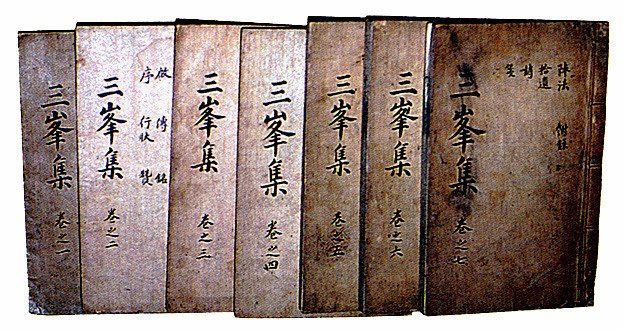 三峯集 卷之一
三峯集 卷之二
序 行狀
傳 銘
三峯集 卷之三
三峯集 卷之四
三峯集 卷之五
三峯集 卷之六
三峯集 卷之七
陣法 附錄
拾遺